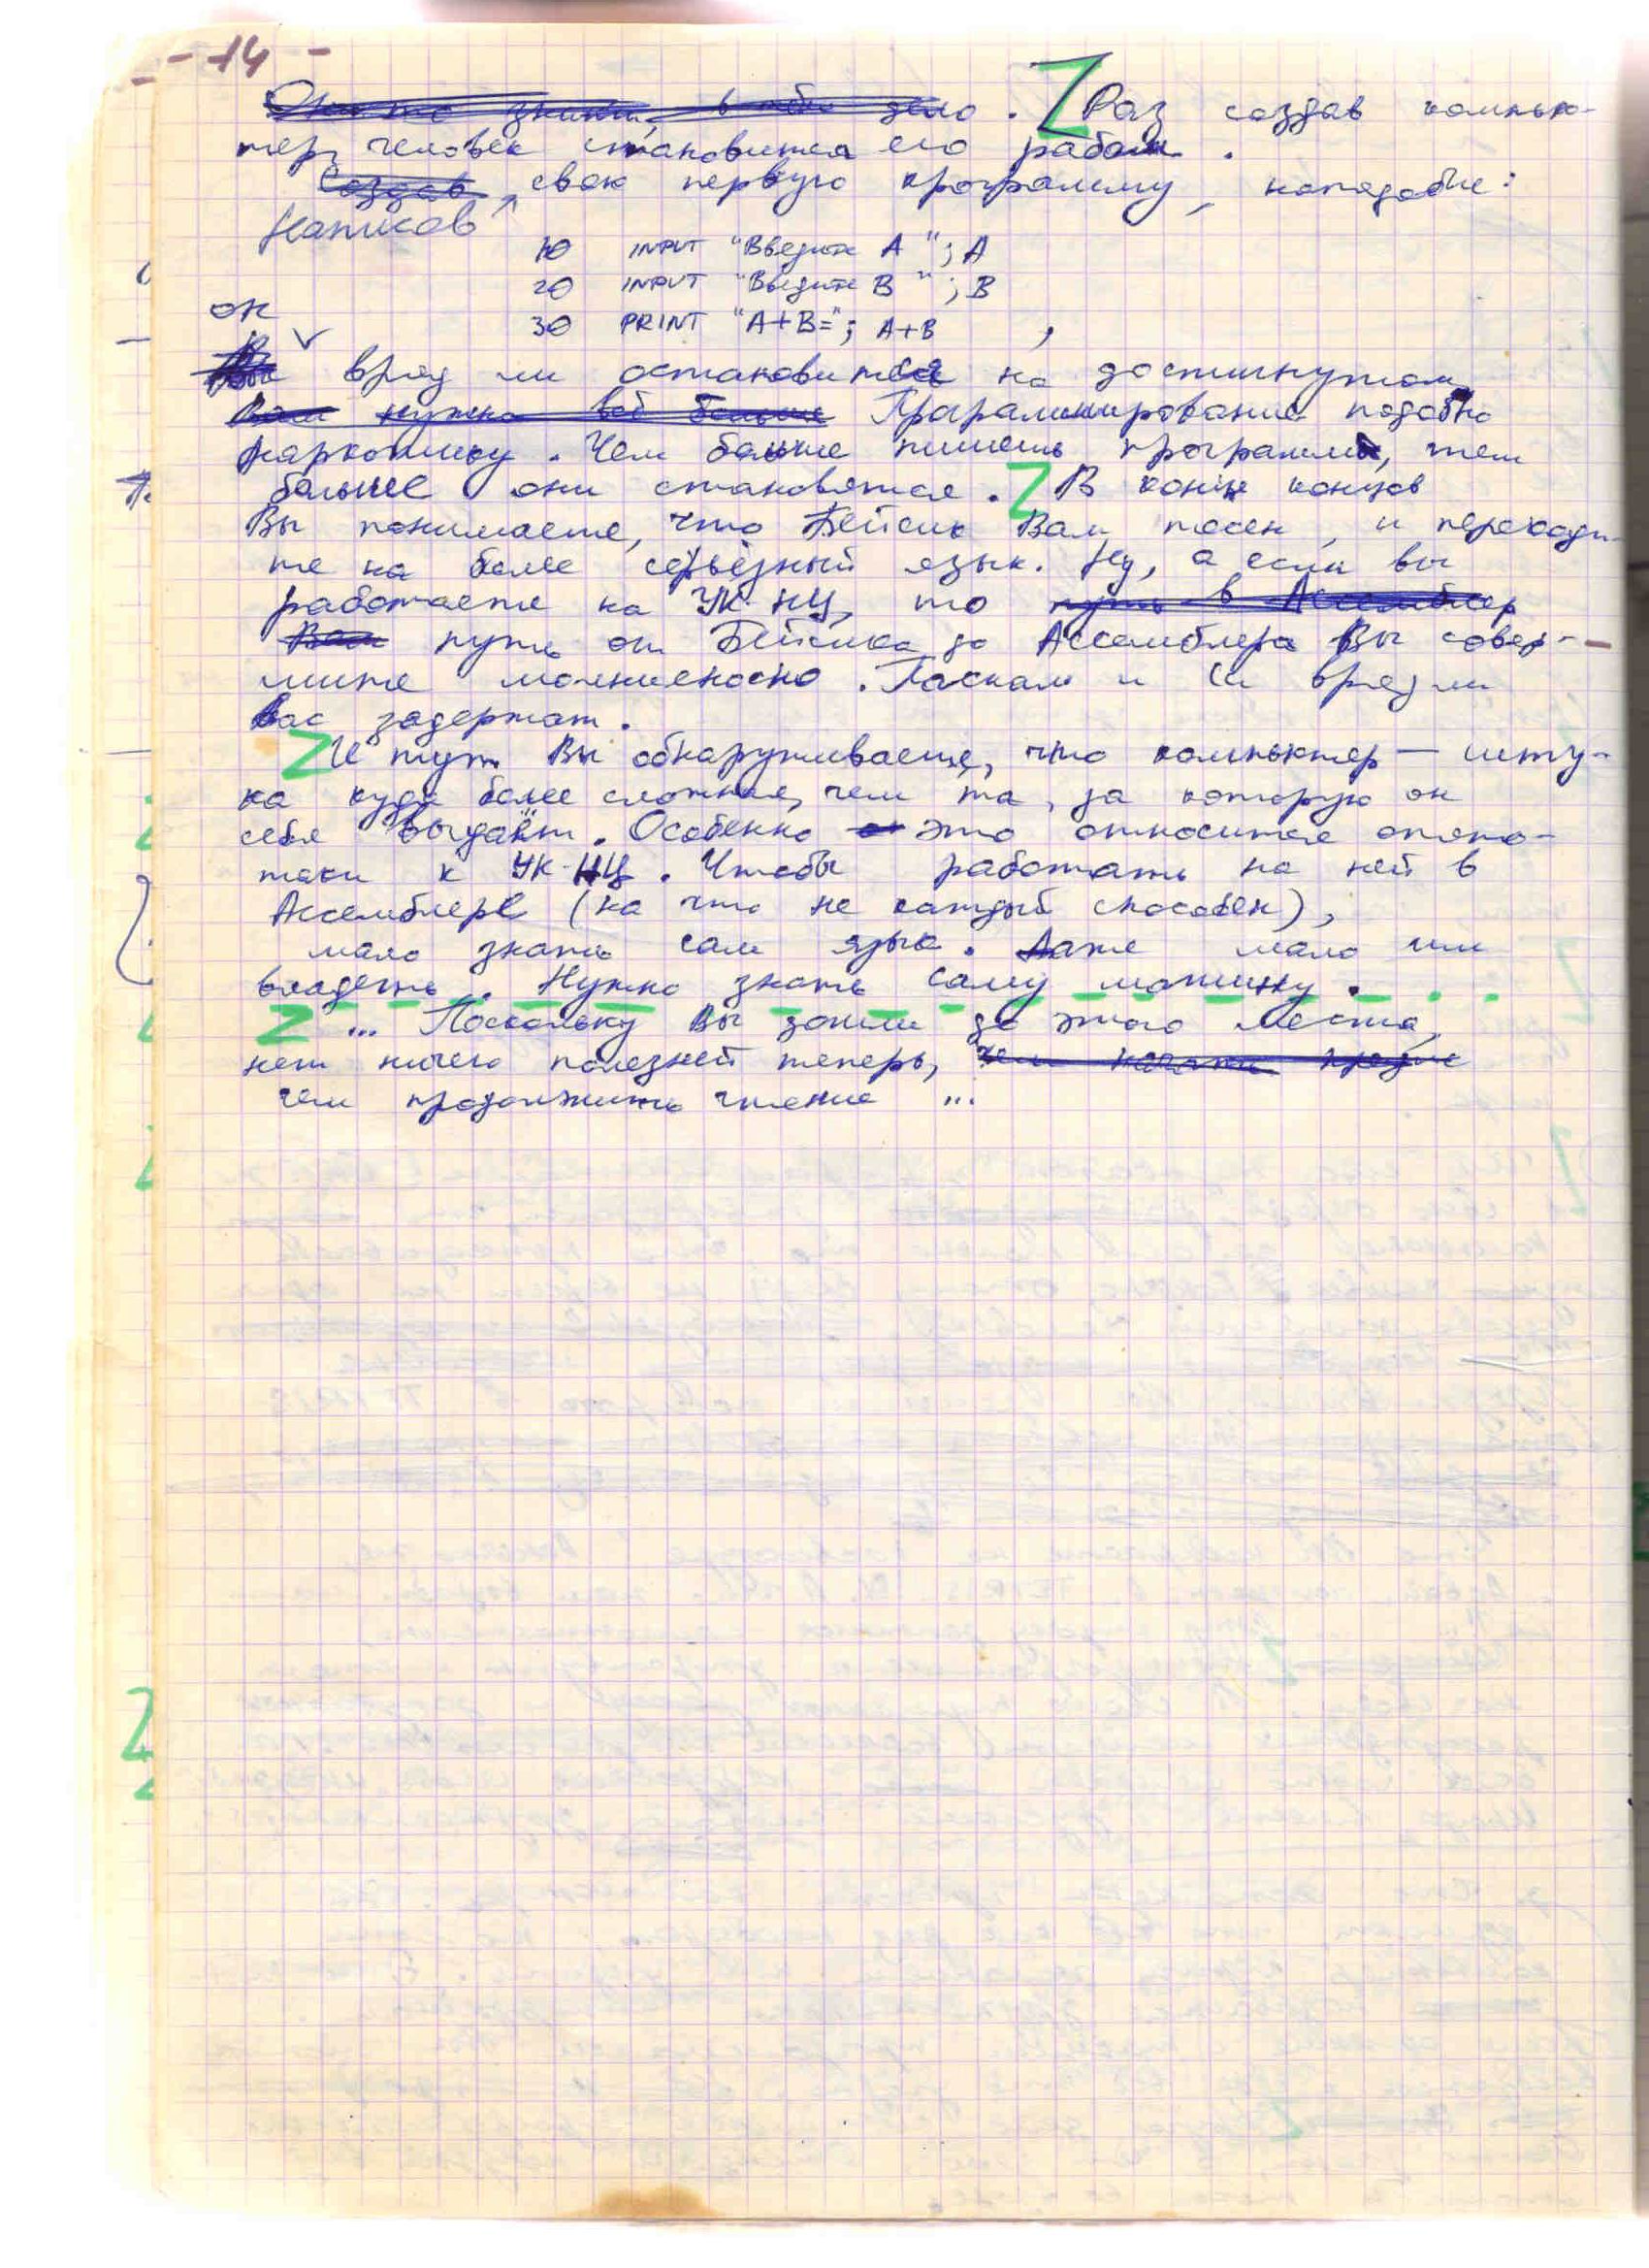 - 14 -
дело. Раз создав компью-
тер, человек становится его рабом.
Создав свою первую программу, наподобие:
Написав
10 INPUT "Введите А"; А
20 INPUT "Введите В"; В
30 PRINT "А+В="; А+В ,
он
вряд ли остановится на достигнутом.
Вам нужно всё больше Программирование подобно
наркотику. Чем больше пишешь программы, тем
больше они становятся. В конце концов
Вы понимаете, что Бейсик Вам тесен, и переходи-
те на более серьёзный язык. Ну, а если вы
работаете на УК-НЦ, то путь в Ассемблер
Ваш путь от Бейсика до Ассемблера Вы совер-
шите молниеносно. Паскаль и Си вряд ли
Вас задержат.
И тут Вы обнаруживаете, что компьютер — шту-
ка куда более сложная, чем та, за которую он
себя выдаёт. Особенно это относится опять-
таки к УК-НЦ. Чтобы работать на ней в
Ассемблере (на что не каждый способен),
мало знать сам язык. Даже мало им
владеть. Нужно знать саму машину.
... Поскольку Вы дошли до этого места,
нет ничего полезней теперь, чем начать
чем продолжить чтение ...